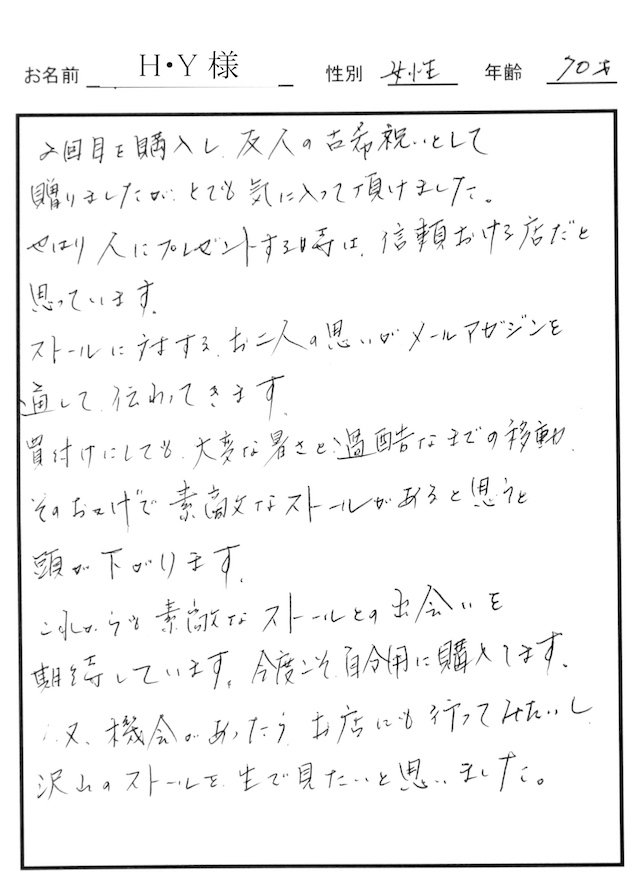 お名前 H・Y 様 性別 女性 年齢 70才
2回目を購入し、友人の古希祝いとして
贈りましたが、とても気に入って頂けました。
やはり人にプレゼントする時は、信頼おける店だと
思っています。
ストールに対する、お二人の思いがメールマガジンを
通して、伝わってきます。
買付けにしても、大変な暑さと過酷なまでの移動、
そのおかげで素敵なストールがあると思うと
頭が下がります。
これからも素敵なストールとの出会いを
期待しています。今度こそ自分用に購入します。
又、機会があったら、お店にも行ってみたいし
沢山のストールを、生で見たいと思いました。